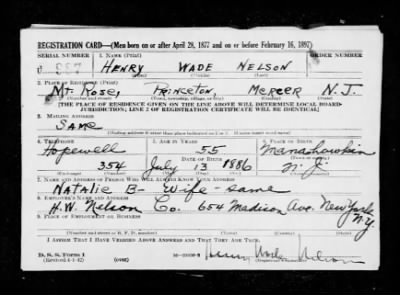 REGISTRATION CARD—(Men born on or after April 28, 1877 and on or before February 16, 1897)
SERIAL NUMBER 1. NAME (Print) ORDER NUMBER
HENRY WADE NELSON
2. PLACE OF RESIDENCE (Print)
Mt. Rose, PRINCETON, MERCER N.J.
[THE PLACE OF RESIDENCE GIVEN ON THE LINE ABOVE WILL DETERMINE LOCAL BOARD
JURISDICTION; LINE 2 OF REGISTRATION CERTIFICATE WILL BE IDENTICAL]
3. MAILING ADDRESS
SAME
[Mailing address if other than place indicated on line 2. If same insert word same]
4. TELEPHONE 5. AGE IN YEARS 6. PLACE OF BIRTH
Hopewell 55 Manahawkin
DATE OF BIRTH
354 July 13 1886 N.J.
7. NAME AND ADDRESS OF PERSON WHO WILL ALWAYS KNOW YOUR ADDRESS
NATALIE B- Wife - same
8. EMPLOYER'S NAME AND ADDRESS
H.W. Nelson Co. 654 Madison Ave. New York
N.Y.
9. PLACE OF EMPLOYMENT OR BUSINESS
I AFFIRM THAT I HAVE VERIFIED ABOVE ANSWERS AND THAT THEY ARE TRUE.
D. S. S. Form 1
(Revised 4-1-42) (over)
Henry Wade Nelson